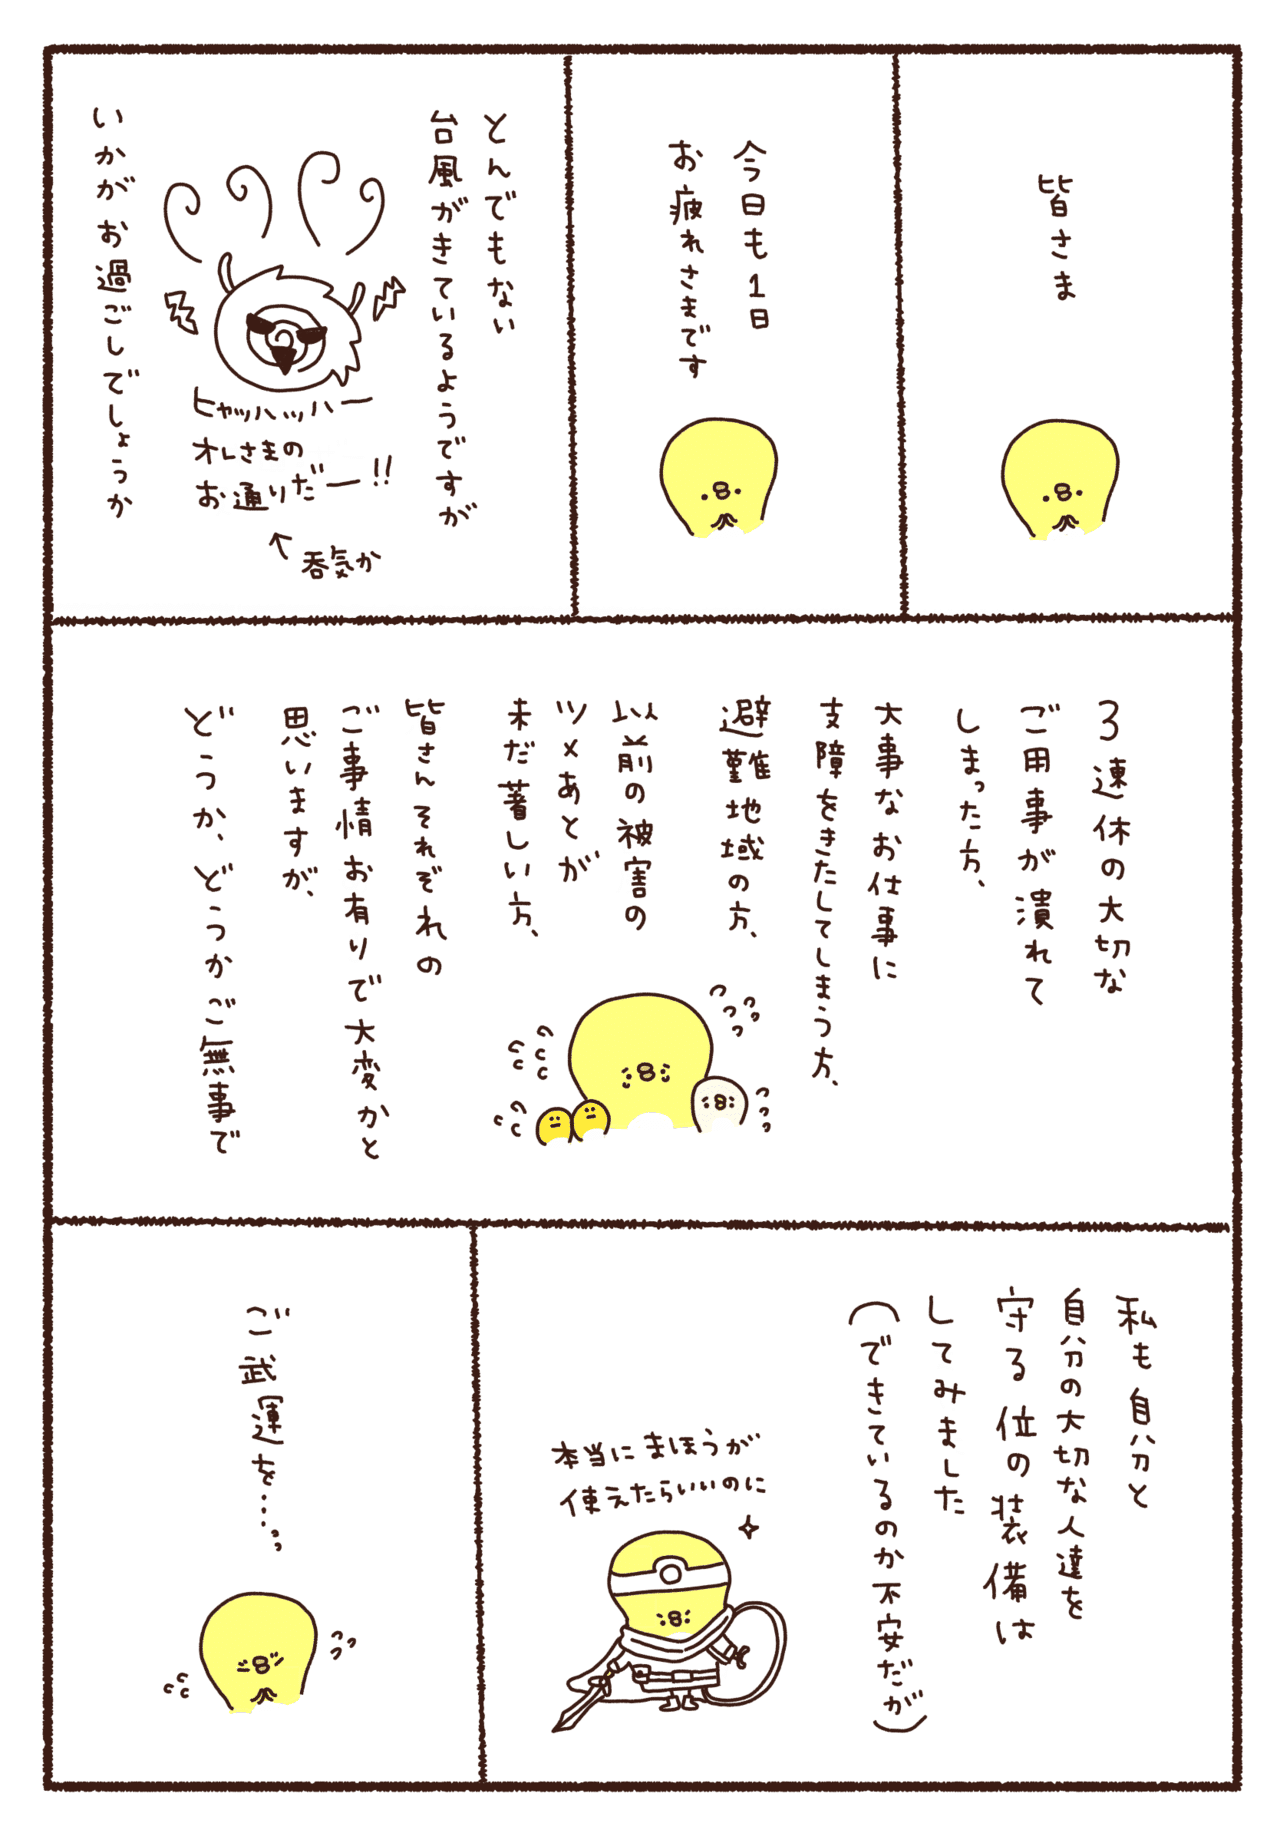 皆さま
今日も1日
お疲れさまです
とんでもない
台風がきているようですが
ヒャッハッハー
オレさまの
お通りだー!!
←呑気か
いかがお過ごしでしょうか
3連休の大切な
ご用事が潰れて
しまった方、
大事なお仕事に
支障をきたしてしまう方、
避難地域の方、
以前の被害の
ツメあとが
未だ著しい方、
皆さんそれぞれの
ご事情お有りで大変かと
思いますが、
どうか、どうかご無事で
私も自分と
自分の大切な人達を
守る位の装備は
してみました
(できているのか不安だが)
本当にまほうが
使えたらいいのに
ご武運を……っ